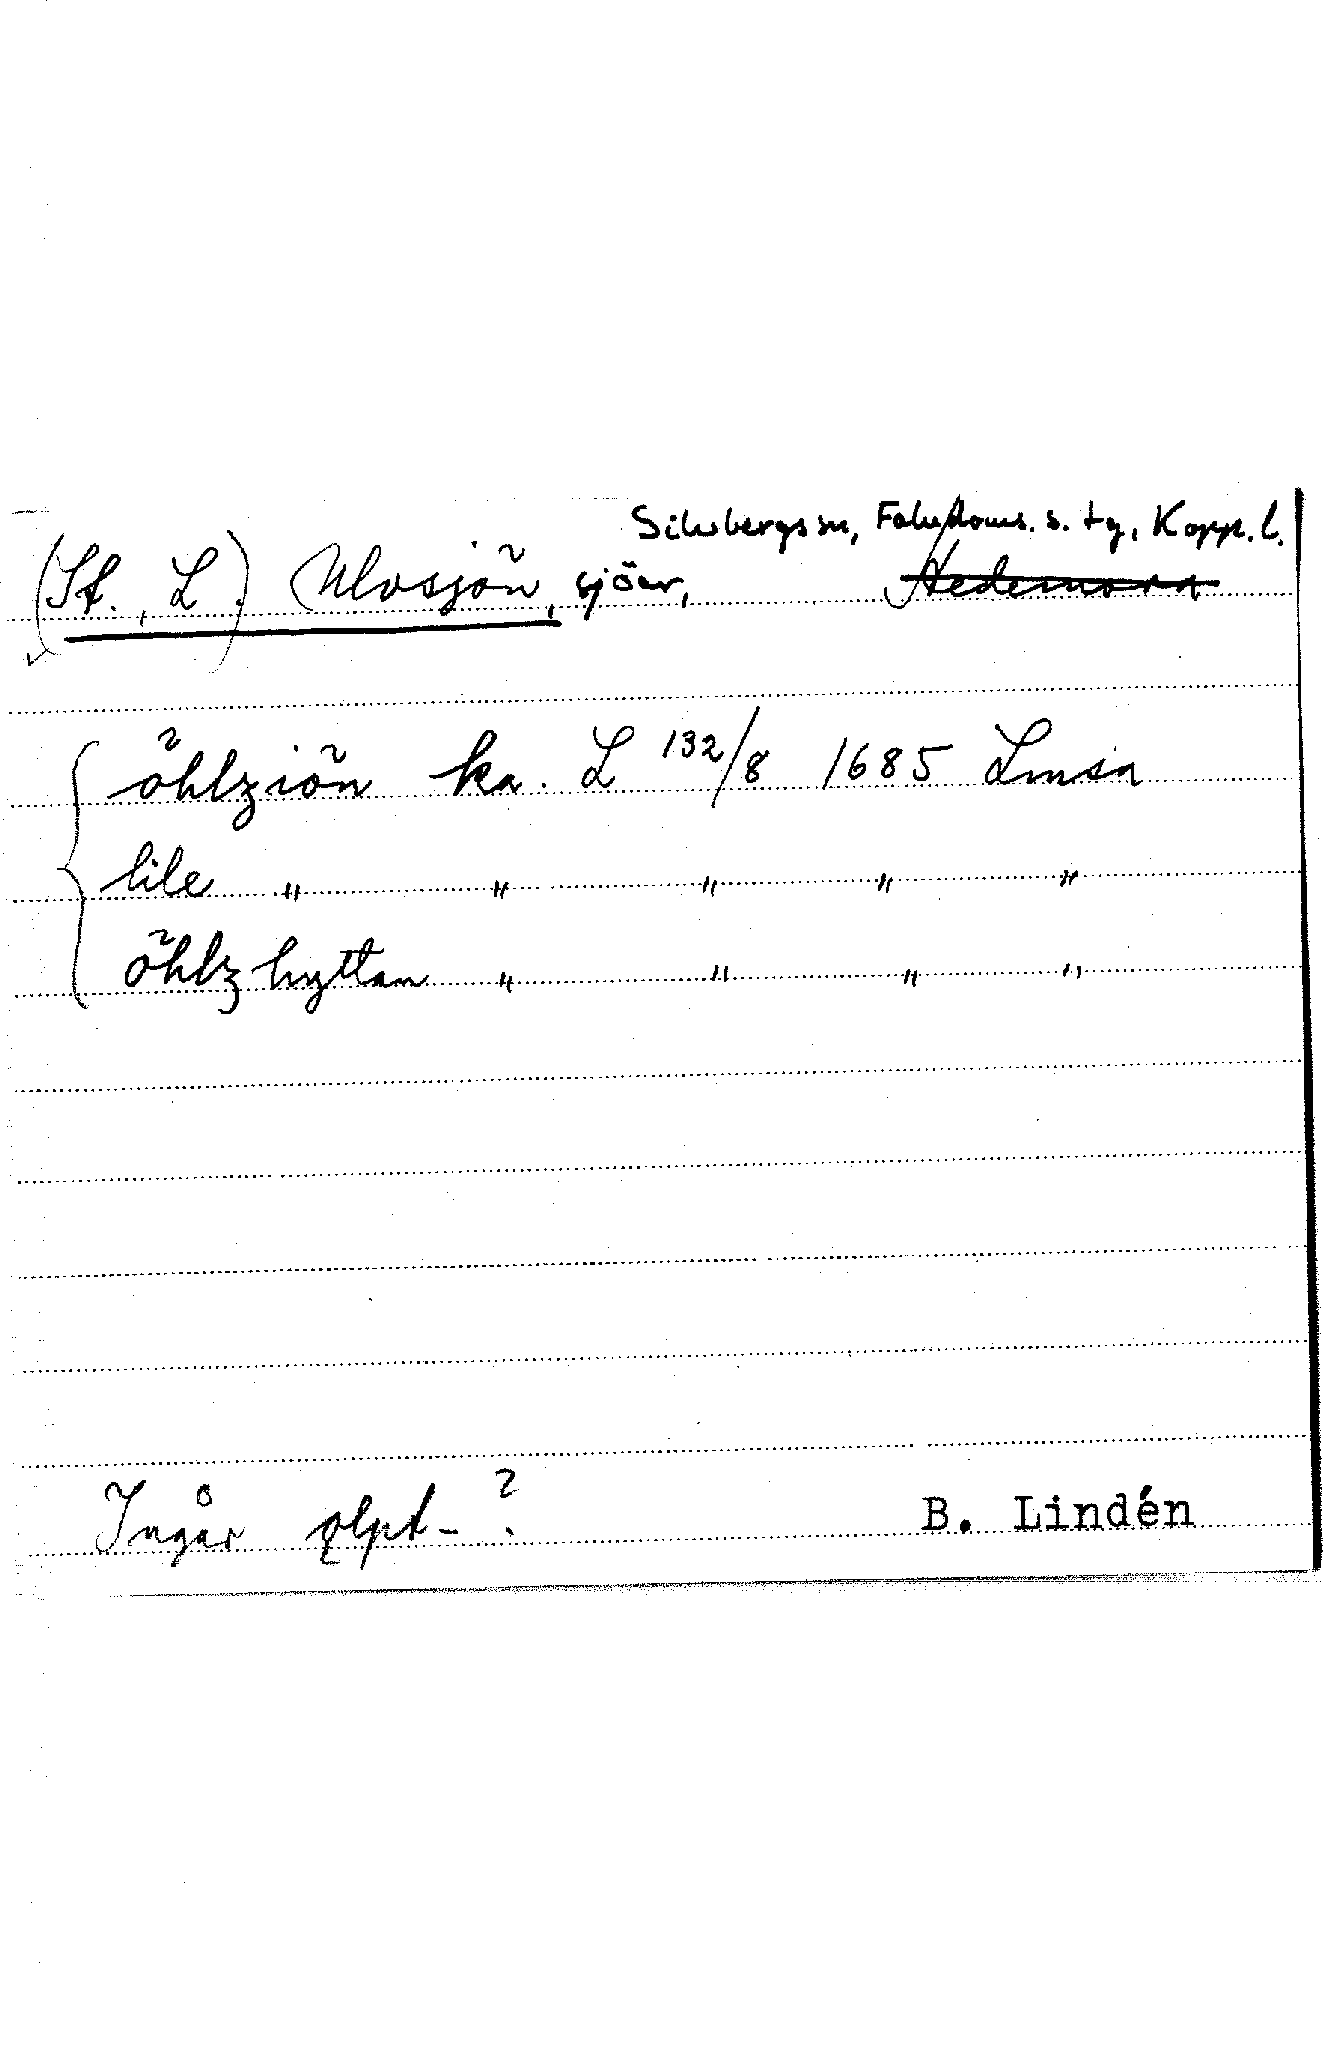 Silvbergs sn, Falu Doms. s. tg, Kopp. l.
(St., L.) Ulvsjön, sjöar, Hedemora
öhlziön ka. L 132/8 1685 Lmsa
lile " " " " "
öhlz hyttan " " " "
Ingår ? B. Lindén